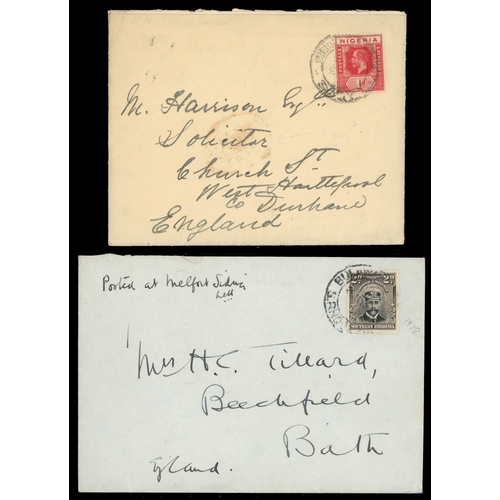 NIGERIA
POSTAGE
1d
M. Harrison Esq.
Solicitor
Church St
West Hartlepool
Co Durham
England
Posted at Melfort Siding
2D 2D
SOUTHERN RHODESIA
Mrs H.C. Tillard,
Beechfield
Bath
England.